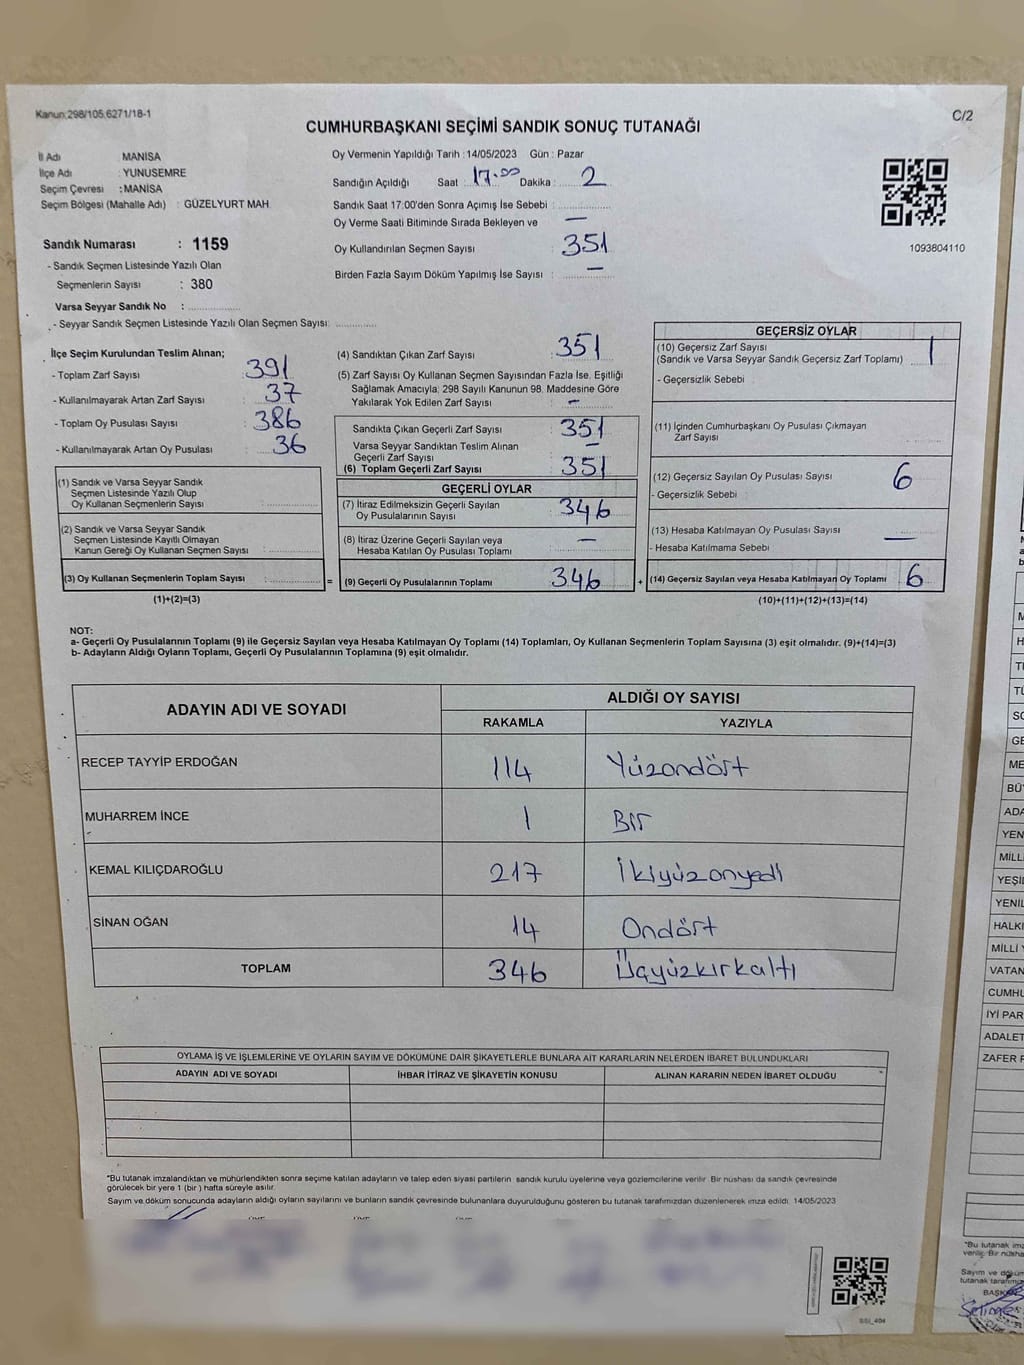 Kanun:298/105,6271/18-1
C/2
CUMHURBAŞKANI SEÇİMİ SANDIK SONUÇ TUTANAĞI
İl Adı MANİSA
İlçe Adı : YUNUSEMRE
Seçim Çevresi : MANİSA
Seçim Bölgesi (Mahalle Adı) : GÜZELYURT MAH.
Sandık Numarası : 1159
- Sandık Seçmen Listesinde Yazılı Olan
Seçmenlerin Sayısı : 380
Varsa Seyyar Sandık No :
- Seyyar Sandık Seçmen Listesinde Yazılı Olan Seçmen Sayısı:
Oy Vermenin Yapıldığı Tarih : 14/05/2023 Gün : Pazar
Sandığın Açıldığı Saat : 17.00 Dakika : 2
Sandık Saat 17:00'den Sonra Açımış İse Sebebi :
Oy Verme Saati Bitiminde Sırada Bekleyen ve —
Oy Kullandırılan Seçmen Sayısı : 351
Birden Fazla Sayım Döküm Yapılmış İse Sayısı : —
1093804110
İlçe Seçim Kurulundan Teslim Alınan;
- Toplam Zarf Sayısı : 391
- Kullanılmayarak Artan Zarf Sayısı : 37
- Toplam Oy Pusulası Sayısı : 386
- Kullanılmayarak Artan Oy Pusulası : 36
(1) Sandık ve Varsa Seyyar Sandık
Seçmen Listesinde Yazılı Olup
Oy Kullanan Seçmenlerin Sayısı :
(2) Sandık ve Varsa Seyyar Sandık
Seçmen Listesinde Kayıtlı Olmayan
Kanun Gereği Oy Kullanan Seçmen Sayısı :
(3) Oy Kullanan Seçmenlerin Toplam Sayısı : =
(1)+(2)=(3)
(4) Sandıktan Çıkan Zarf Sayısı : 351
(5) Zarf Sayısı Oy Kullanan Seçmen Sayısından Fazla İse, Eşitliği
Sağlamak Amacıyla; 298 Sayılı Kanunun 98. Maddesine Göre
Yakılarak Yok Edilen Zarf Sayısı : —
Sandıkta Çıkan Geçerli Zarf Sayısı : 351
Varsa Seyyar Sandıktan Teslim Alınan
Geçerli Zarf Sayısı : —
(6) Toplam Geçerli Zarf Sayısı : 351
GEÇERLİ OYLAR
(7) İtiraz Edilmeksizin Geçerli Sayılan
Oy Pusulalarının Sayısı : 346
(8) İtiraz Üzerine Geçerli Sayılan veya
Hesaba Katılan Oy Pusulası Toplamı : —
(9) Geçerli Oy Pusulalarının Toplamı : 346 +
GEÇERSİZ OYLAR
(10) Geçersiz Zarf Sayısı
(Sandık ve Varsa Seyyar Sandık Geçersiz Zarf Toplamı) : 1
- Geçersizlik Sebebi :
(11) İçinden Cumhurbaşkanı Oy Pusulası Çıkmayan
Zarf Sayısı :
(12) Geçersiz Sayılan Oy Pusulası Sayısı : 6
- Geçersizlik Sebebi :
(13) Hesaba Katılmayan Oy Pusulası Sayısı : —
- Hesaba Katılmama Sebebi :
(14) Geçersiz Sayılan veya Hesaba Katılmayan Oy Toplamı : 6
(10)+(11)+(12)+(13)=(14)
NOT:
a- Geçerli Oy Pusulalarının Toplamı (9) ile Geçersiz Sayılan veya Hesaba Katılmayan Oy Toplamı (14) Toplamları, Oy Kullanan Seçmenlerin Toplam Sayısına (3) eşit olmalıdır. (9)+(14)=(3)
b- Adayların Aldığı Oyların Toplamı, Geçerli Oy Pusulalarının Toplamına (9) eşit olmalıdır.
ADAYIN ADI VE SOYADI
ALDIĞI OY SAYISI
RAKAMLA YAZIYLA
RECEP TAYYİP ERDOĞAN 114 Yüzondört
MUHARREM İNCE 1 Bir
KEMAL KILIÇDAROĞLU 217 İkiyüzonyedi
SİNAN OĞAN 14 Ondört
TOPLAM 346 Üçyüzkırkaltı
OYLAMA İŞ VE İŞLEMLERİNE VE OYLARIN SAYIM VE DÖKÜMÜNE DAİR ŞİKAYETLERLE BUNLARA AİT KARARLARIN NELERDEN İBARET BULUNDUKLARI
ADAYIN ADI VE SOYADI İHBAR İTİRAZ VE ŞİKAYETİN KONUSU ALINAN KARARIN NEDEN İBARET OLDUĞU
*Bu tutanak imzalandıktan ve mühürlendikten sonra seçime katılan adayların ve talep eden siyasi partilerin sandık kurulu üyelerine veya gözlemcilerine verilir. Bir nüshası da sandık çevresinde
görülecek bir yere 1 (bir ) hafta süreyle asılır.
Sayım ve döküm sonucunda adayların aldığı oyların sayılarını ve bunların sandık çevresinde bulunanlara duyurulduğunu gösteren bu tutanak tarafımızdan düzenlenerek imza edildi. 14/05/2023
YENİ
MİLLİ
HALKI
MİLLİ Y
VATAN
CUMHU
İYİ PAR
ADALET
ZAFER P
*Bu tutanak imz
verilir. Bir nüsha
Sayım ve döküm
tutanak tarafımız